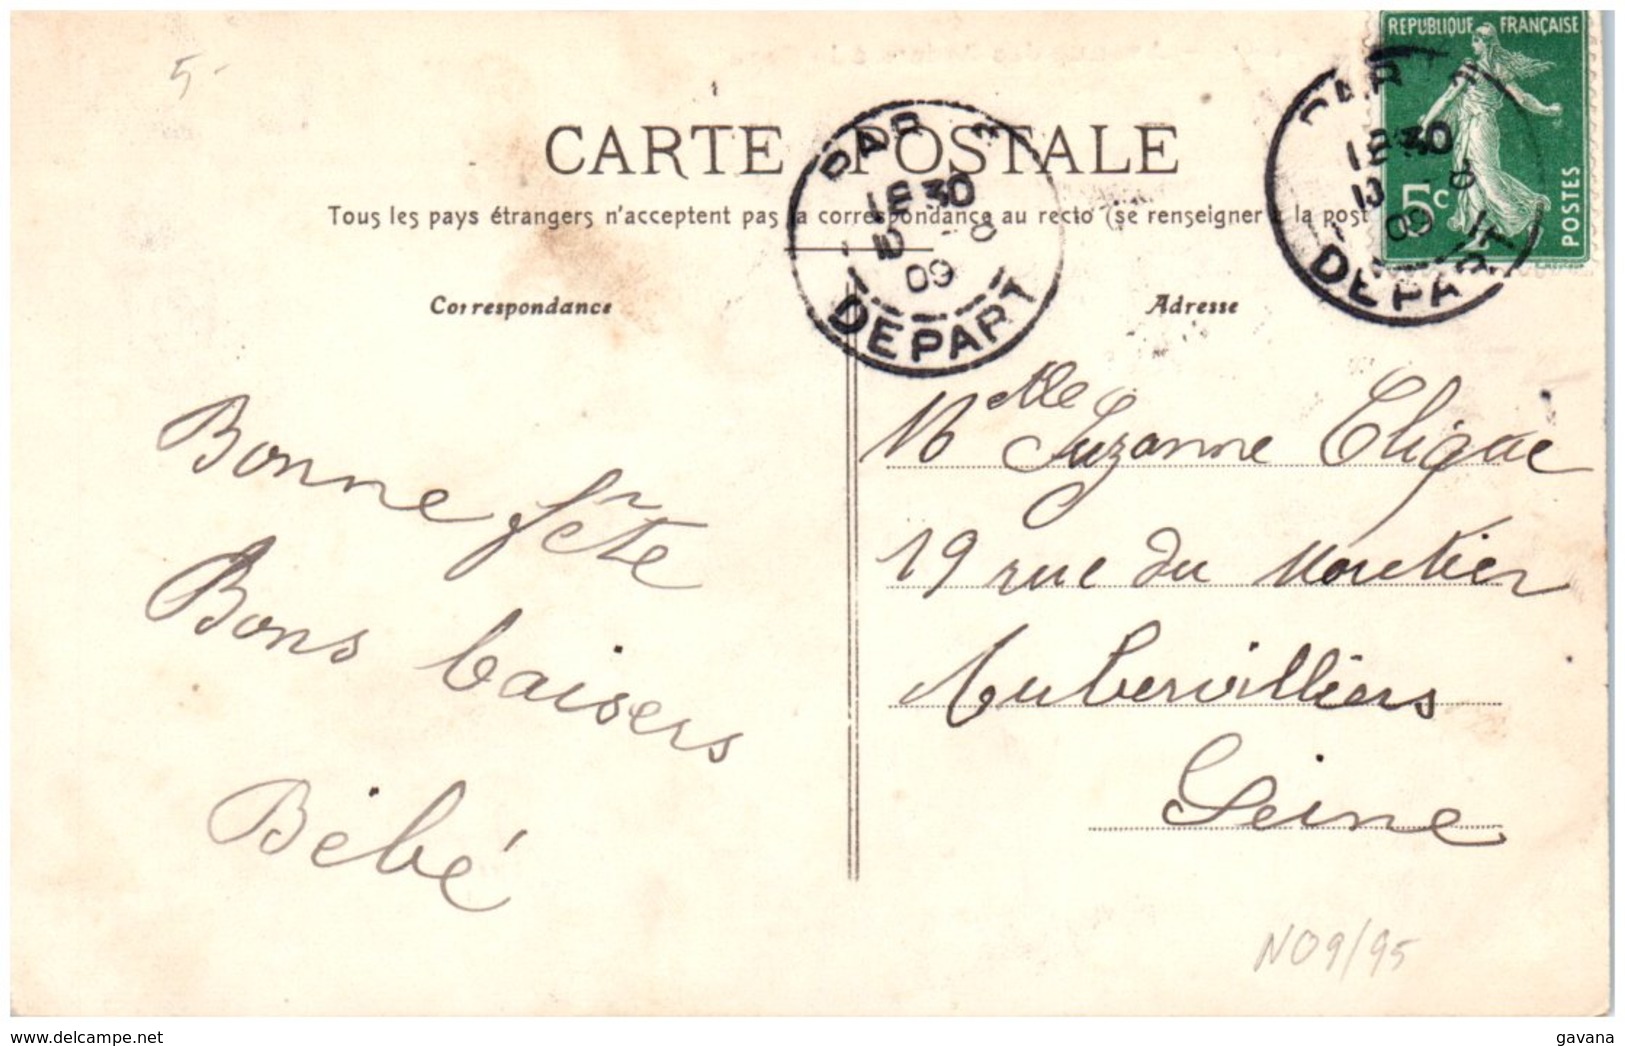 5-
REPUBLIQUE FRANÇAISE
5c
POSTES
CARTE POSTALE
Tous les pays étrangers n'acceptent pas la correspondance au recto (se renseigner à la post
Correspondance
Adresse
PAR
18 30
10 -8
09
DEPART
18 30
10 8
09
DEPART
Bonne fête
Bons baisers
Bébé
Mlle Suzanne
19 rue du Moutier
Aubervilliers
Seine
N09/95
delcampe.net
gavana